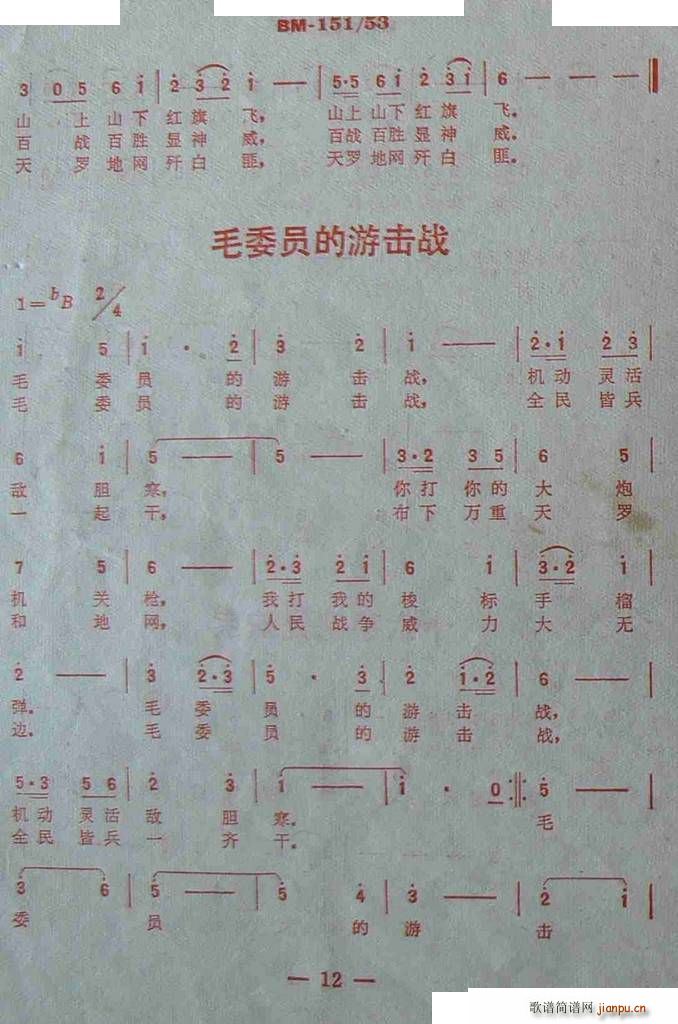 BM-151/53
3 0 5 6 1 | 2 3 2 1 — | 5·5 6 1 2 3 1 | 6 — — —
山 上 山 下 红 旗 飞， 山上 山下 红 旗 飞。
百 战 百 胜 显 神 威， 百战 百胜 显 神 威。
天 罗 地 网 歼 白 匪， 天罗 地网 歼 白 匪。
毛委员的游击战
1=bB 2/4
1 5 | 1 · 2 | 3 2 | 1 — | 2·1 2 3 |
毛 委 员 的 游 击 战， 机动 灵活
毛 委 员 的 游 击 战， 全民 皆兵
6 1 | 5 — | 5 — | 3·2 3 5 | 6 5 |
敌 胆 寒， 你打 你的 大 炮
一 起 干， 布下 万重 天 罗
7 5 | 6 — | 2·3 2 1 | 6 1 | 3·2 1 |
机 关 枪， 我打 我的 梭 标 手 榴
和 地 网， 人民 战争 威 力 大 无
2 — | 3 2·3 | 5 · 3 | 2 1·2 | 6 — |
弹。 毛 委 员 的 游 击 战，
边。 毛 委 员 的 游 击 战，
5·3 5 6 | 2 3 | 1 — | 1 · 0 :||: 5 — |
机动 灵活 敌 胆 寒。 毛
全民 皆兵 一 齐 干。
3 6 | 5 — | 5 4 | 3 — | 2 1 |
委 员 的 游 击
— 12 —
歌谱简谱网
jianpu.cn